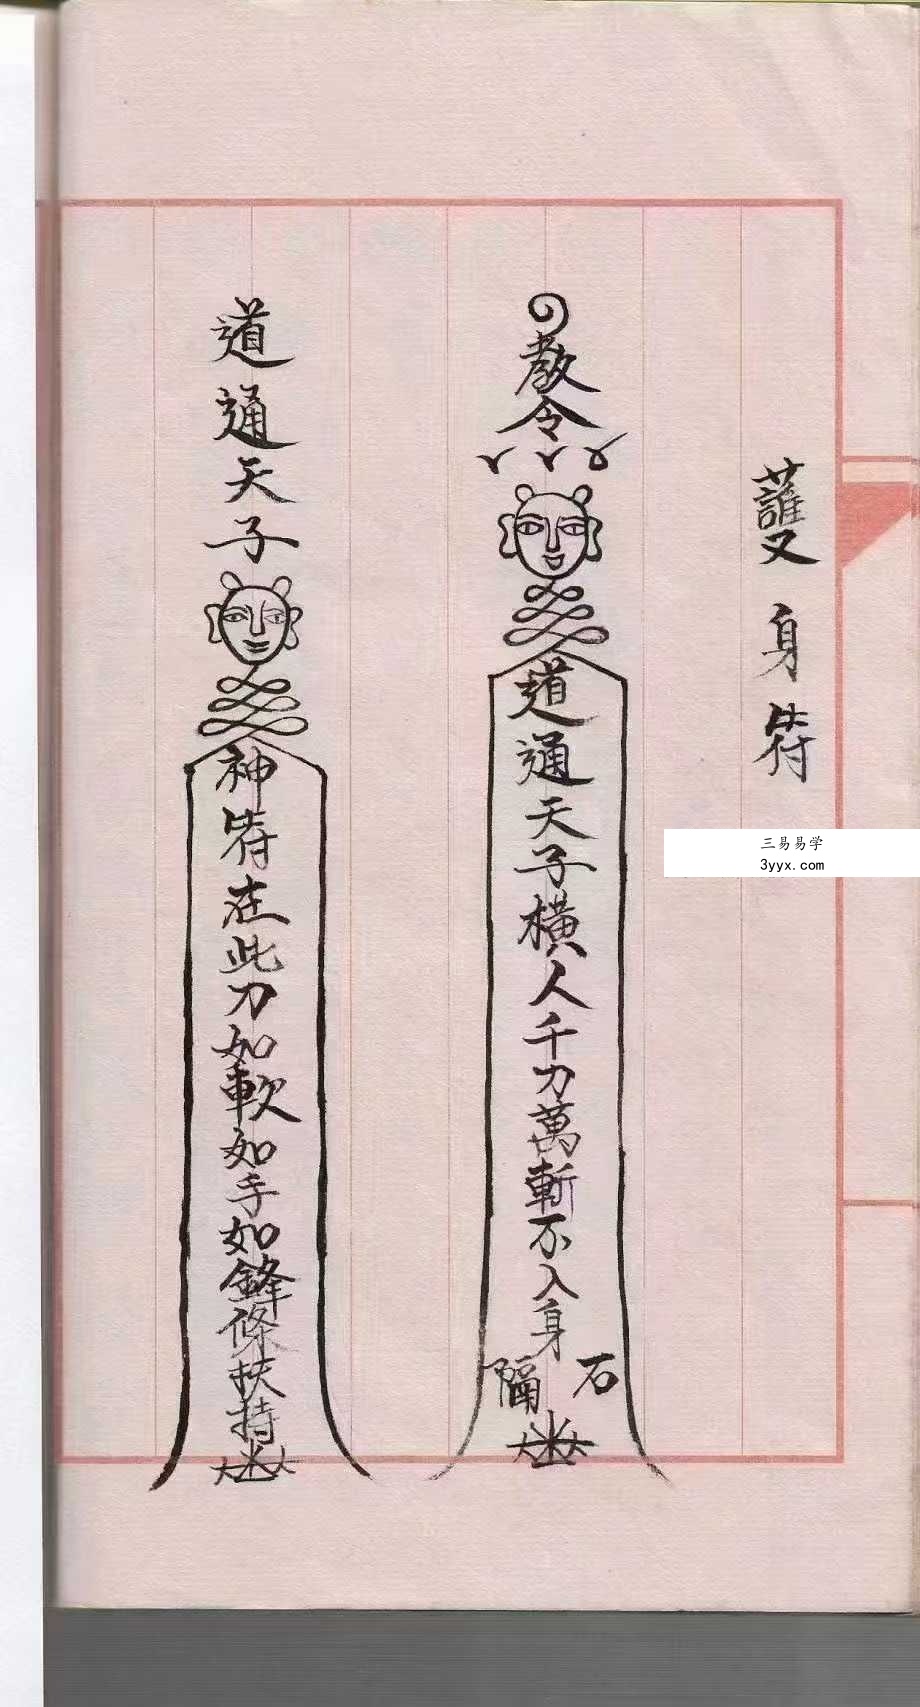 護身符
敎令
道通天子橫人千刀萬斬不入身
石
隔
道通天子
神符在此刀如軟如手如鋒條扶持
三易易学
3yyx.com